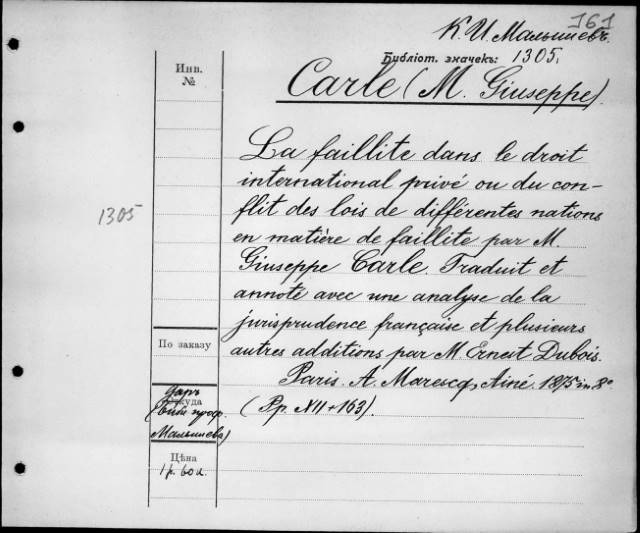 161
К. И. Малышевъ.
Библіот. значекъ: 1305.
Carle (M. Giuseppe).
Инв.
№
1305
La faillite dans le droit
international privé ou du con-
flit des lois de différentes nations
en matière de faillite par M.
Giuseppe Carle. Traduit et
annoté avec une analyse de la
jurisprudence française et plusieurs
autres additions par M. Ernest Dubois.
Paris. A. Marescq, Ainé. 1875 in 8°
(Pp. XII + 163).
По заказу
Даръ
Откуда
(библ. проф.
Малышева)
Цѣна
1 р. 60 к.